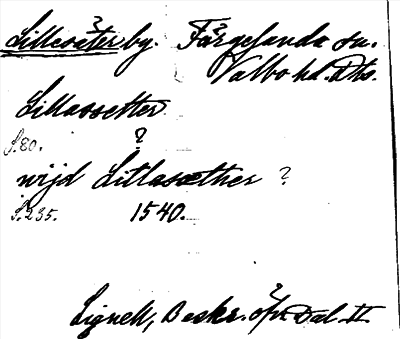 Lillesäter by. Färgelanda sn.
Valbo hd. Dls.
Lillassetter
S. 80. ?
wijd Litlasæther ?
S. 235. 1540.
Lignell, Beskr. öfv. Dal. II.